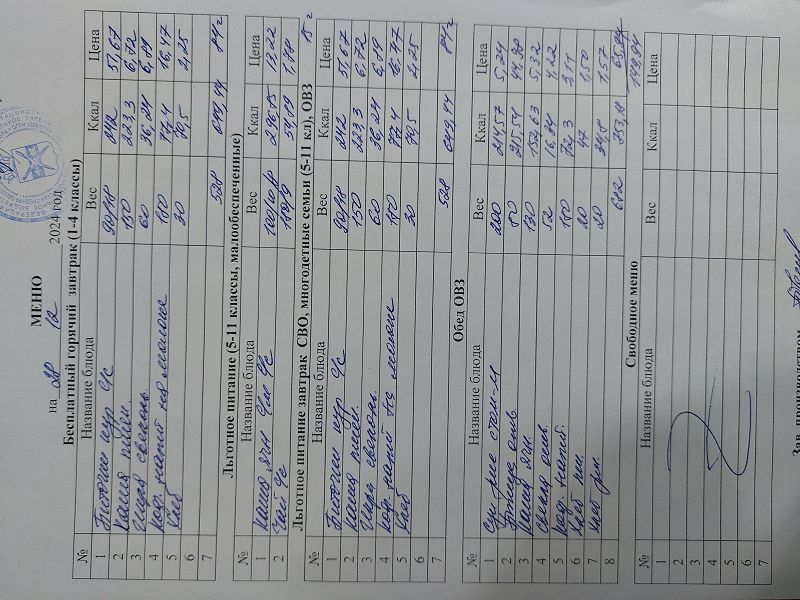 МЕНЮ
на 28 12 2024 год
Бесплатный горячий завтрак (1-4 классы)
№ Название блюда Вес Ккал Цена
1 Биточки кур с/с 90/48 242 51,67
2 Каша пшен. 150 223,3 6,72
3 Икра свекольн. 60 36,24 6,19
4 Коф. напит на молоке 180 77,4 16,47
5 Хлеб 30 70,5 2,25
6
7 528 649,44 84 г
Льготное питание (5-11 классы, малообеспеченные)
№ Название блюда Вес Ккал Цена
1 Каша ячн с/с 216,15 13,22
2 Чай с/с 1,78
15 г
Льготное питание завтрак СВО, многодетные семьи (5-11 кл), ОВЗ
№ Название блюда Вес Ккал Цена
1 Биточки кур с/с 90/48 242 51,67
2 Каша пшен. 150 223,3 6,72
3 Икра свекольн. 60 36,24 6,19
4 Коф. напит на молоке 180 77,4 16,47
5 Хлеб 30 70,5 2,25
6
7 528 649,44 84 г
Обед ОВЗ
№ Название блюда Вес Ккал Цена
1 Суп 200 214,57 5,24
2 50 215,54 44,98
3 Каша ячн. 130 152,63 5,32
4 свекла 52 16,84 4,22
5 Коф. напит. 180 72,3 3,11
6 Хлеб пш. 20 47 1,50
7 Хлеб рж. 20 34,8 1,57
8 652 753,68
149,94
Свободное меню
№ Название блюда Вес Ккал Цена
1
2
3
4
5
6
7
Зав. производством